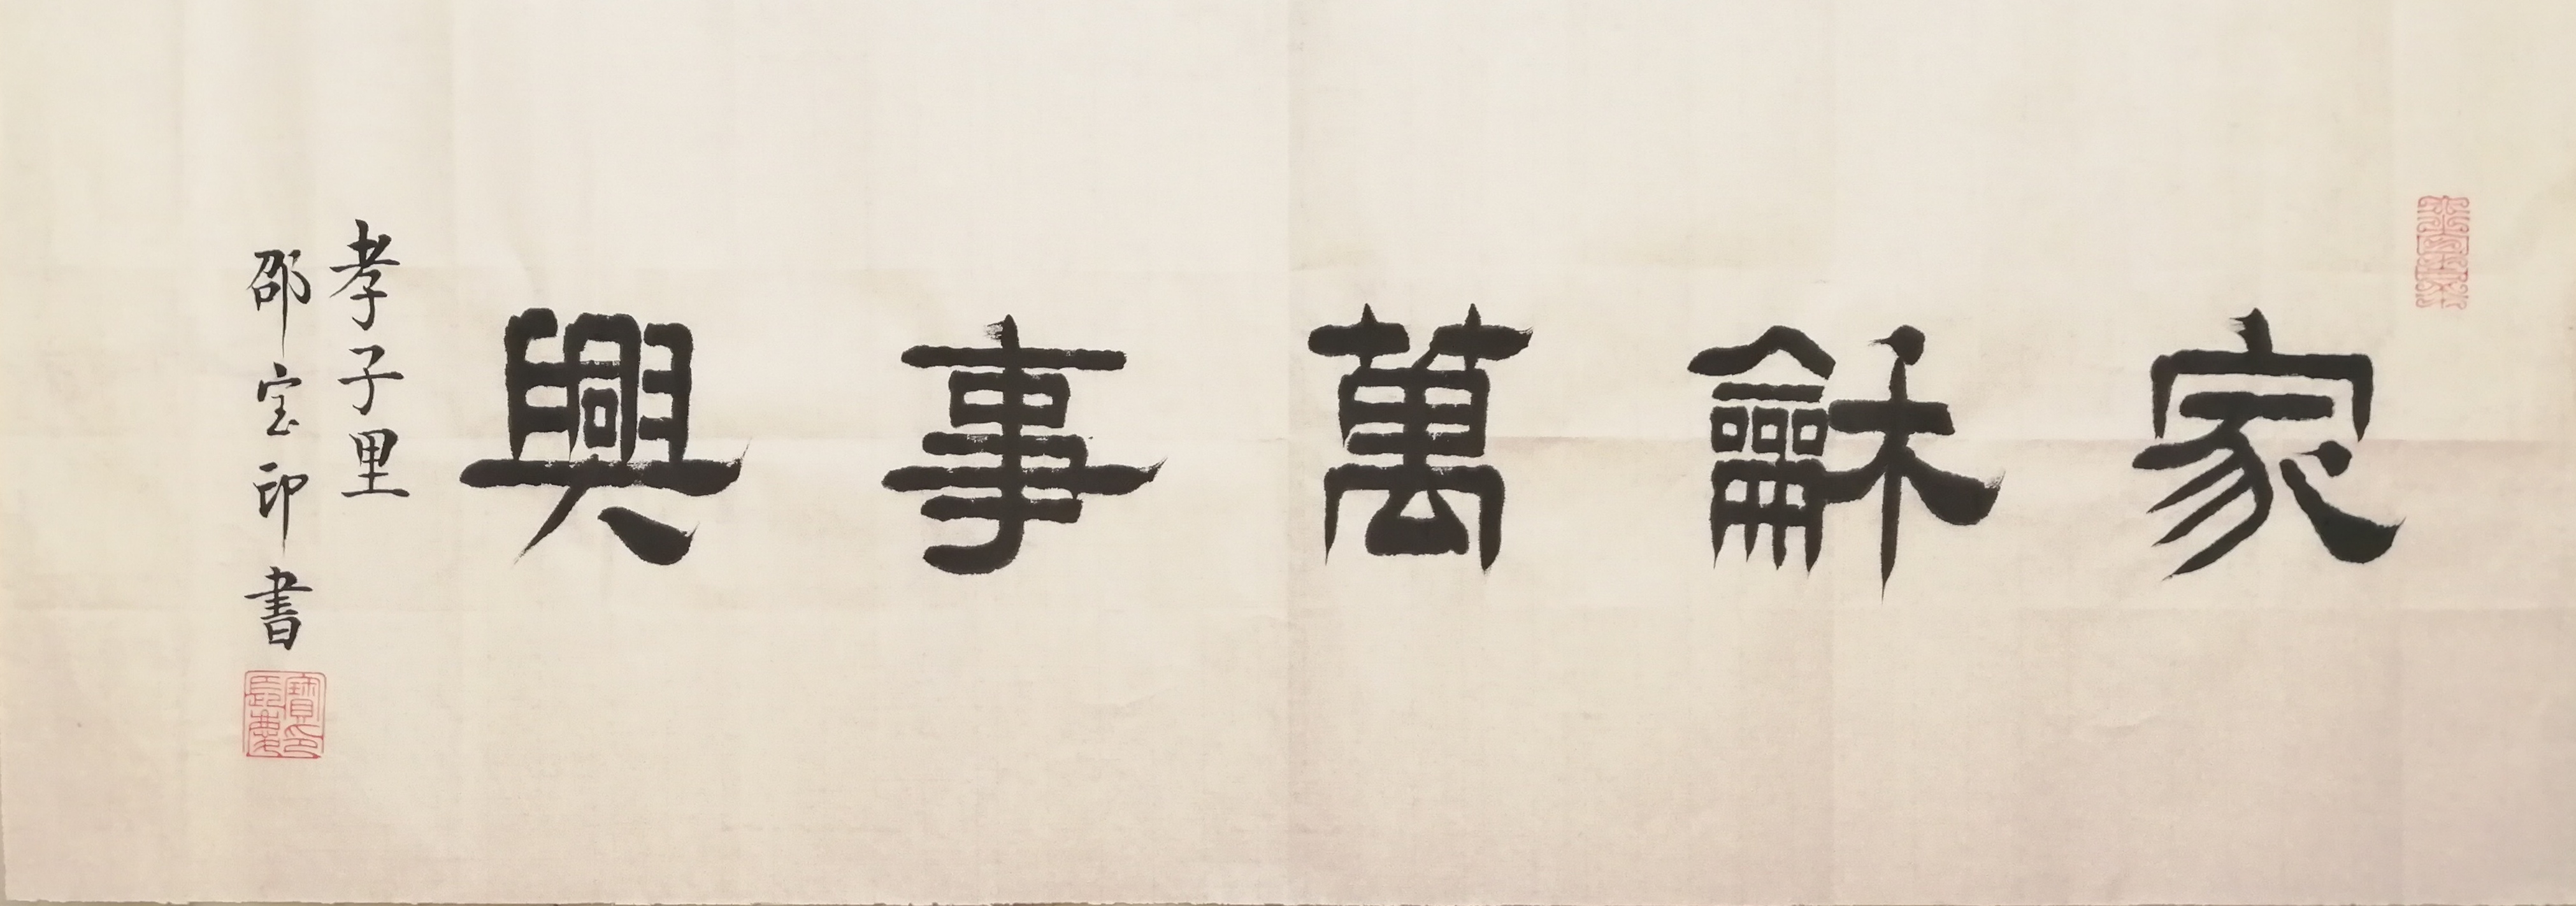 家龢萬事興
孝子里
邵宝印書